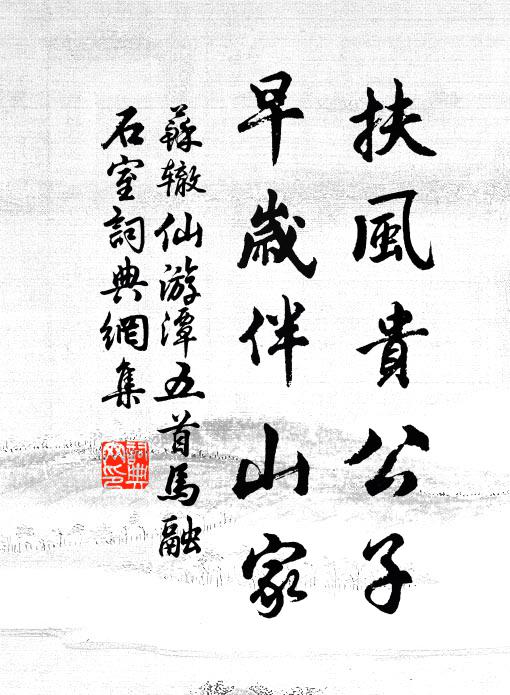 扶風貴公子
早歲伴山家
蘇辙仙游潭五首馬融
石室詞典網集